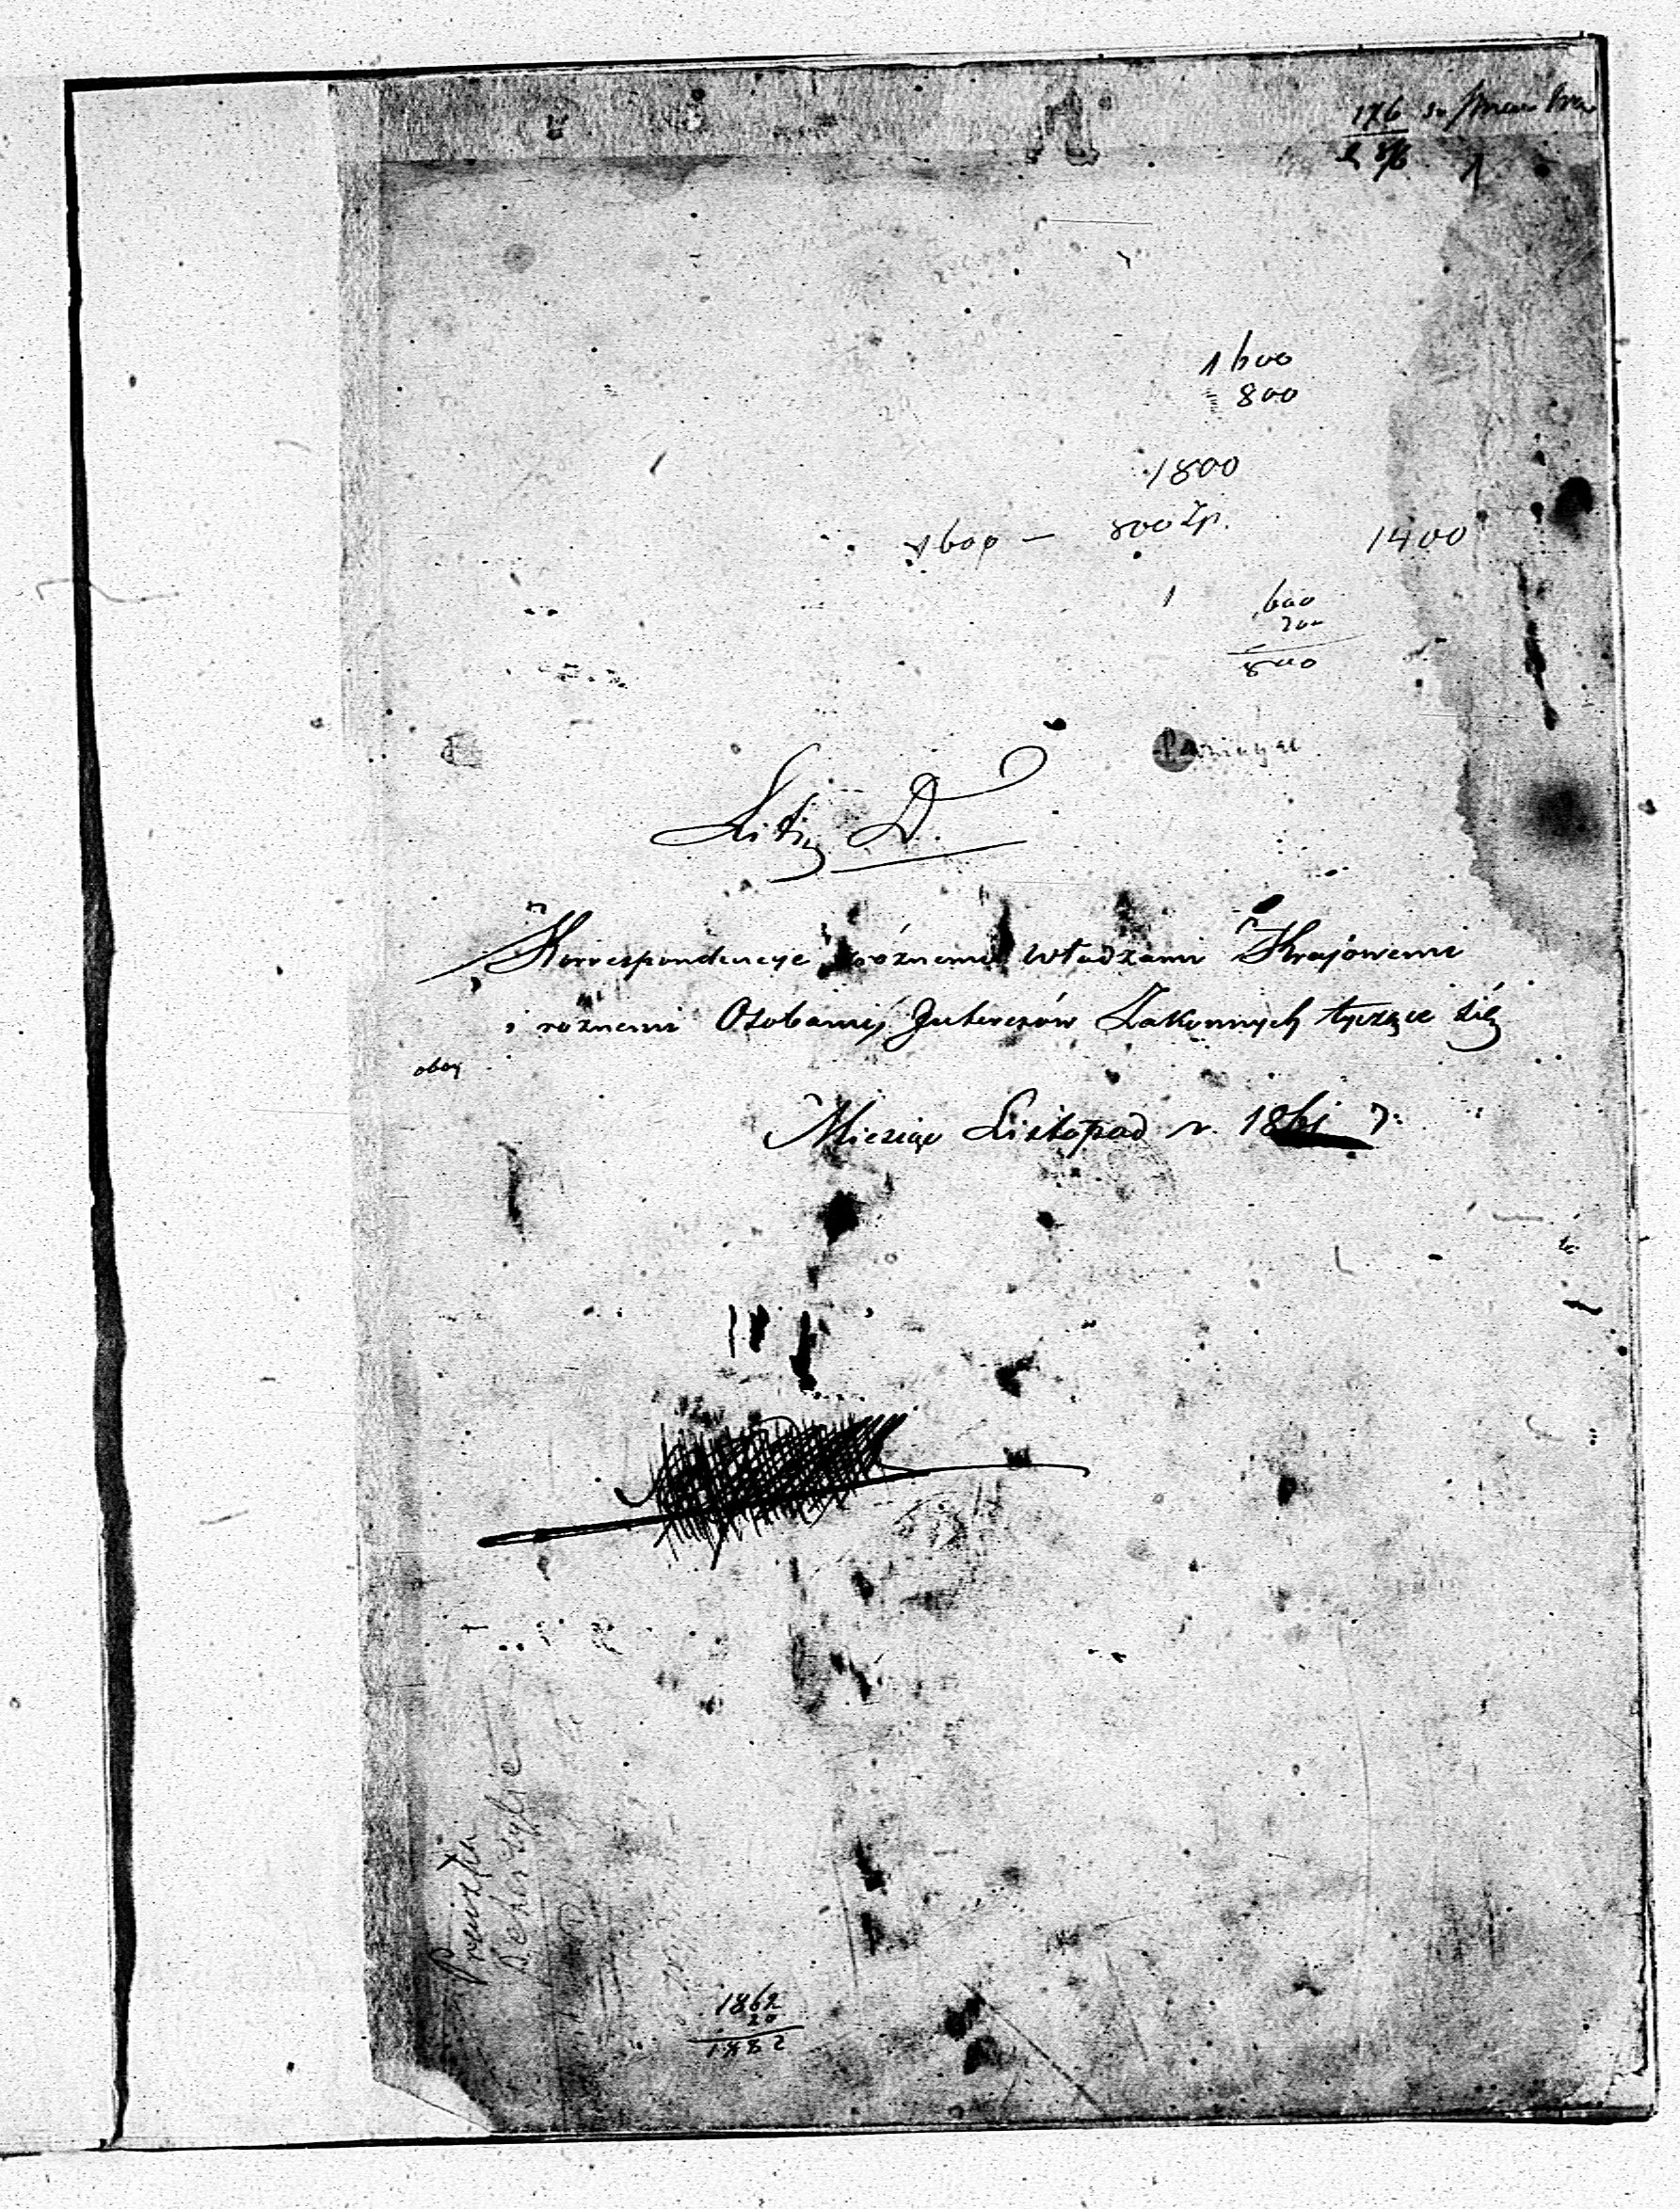 176
1600
800
1800
1600 — 800 Zp. 1400
600
200
800
Lit. D.
Korrespondencye różnemi Władzami Krajowemi
i roznemi Osobami, Interesów Zakonnych tyczące się
Miesiąc Listopad r. 1861 r.
1862
20
1882